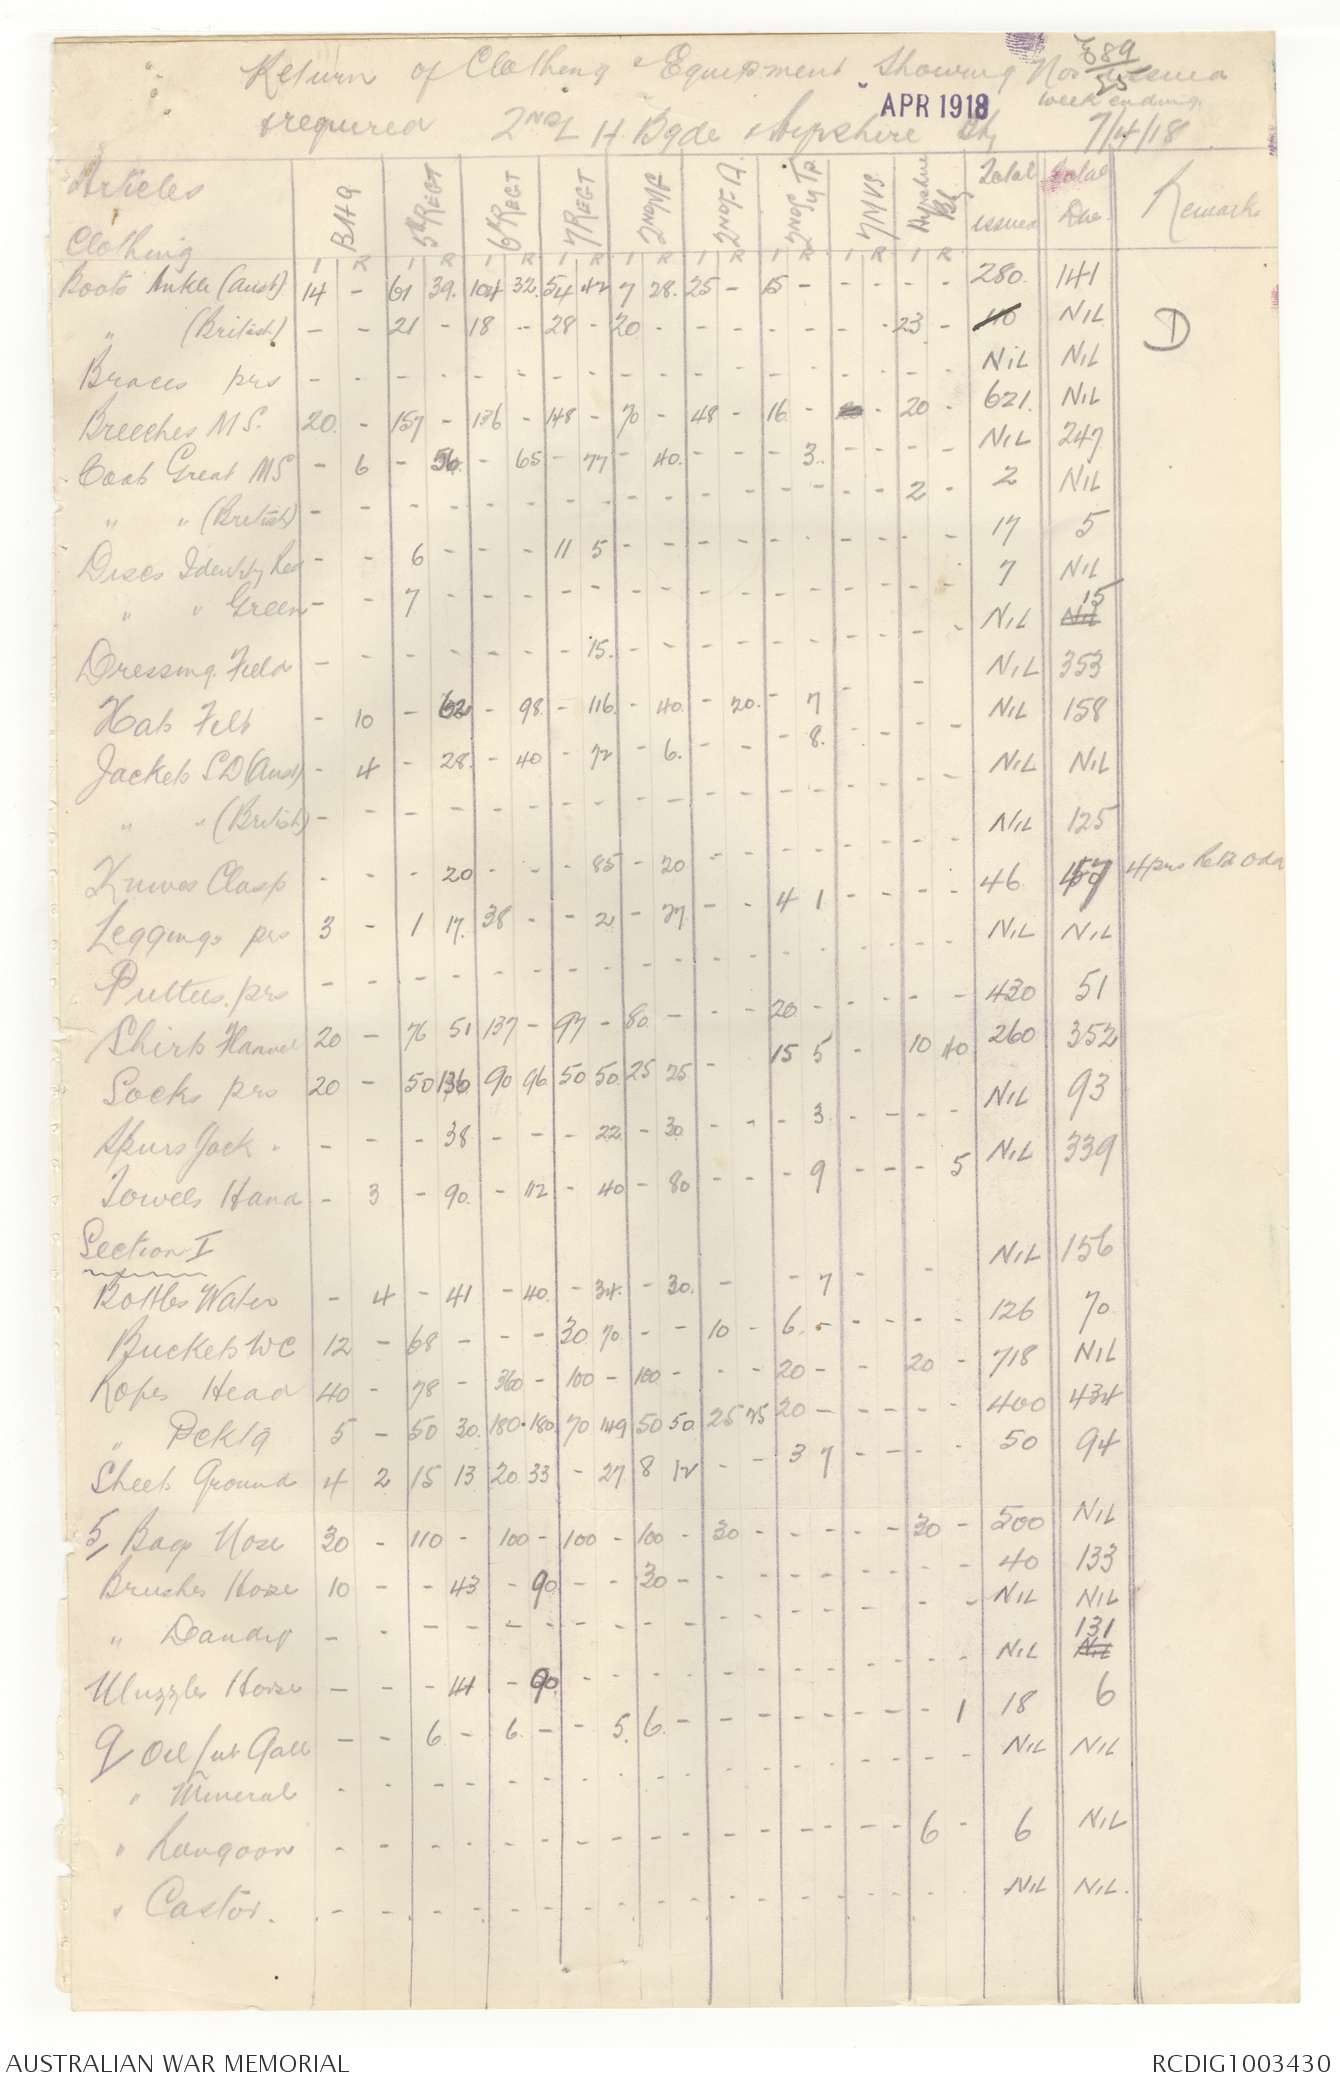 Return of Clothing & Equipment Showing Nos Issued
& required 2ND L H Bgde & Ayrshire Bty week ending 7/4/18
APR 1918
Articles BHQ 5th REGT 6th REGT 7 REGT 2nd MG 2nd F A. 2nd Sig Tp 7 MVS Ayrshire By Total issued Total Due Remarks
Clothing I R I R I R I R I R I R I R I R I R
Boots Ankle (Aust) 14 - 61 39. 104 32. 54 42 7 28. 25 - 15 - - - - - 280. 141
" (British) - - 21 - 18 - 28 - 20 - - - - - - - 23 - 110 NIL D
Braces prs - - - - - - - - - - - - - - - - - - NIL NIL
Breeches M S. 20. - 157 - 136 - 148 - 70 - 48 - 16 - - 20 - 621. NIL
Coats Great MS - 6 - 56. - 65 - 77 - 40. - - - 3. - - - - NIL 247
" " (British) - - - - - - - - - - - - - - - - 2 - 2 NIL
Discs Identity Red - - 6 - - - 11 5 - - - - - - - - - - 17 5
" " Green - - 7 - - - - - - - - - - - - - - - 7 NIL
Dressing. Field - - - - - - 15. - - - - - - - - - NIL 15 NIL
Hats Felt - 10 - 62 - 98. - 116. - 40. - 20. - 7 - - NIL 353
Jackets SD (Aust) - 4 - 28. - 40 - 72 - 6. - - - 8. - - - - NIL 158
" " (British) - - - - - - - - - - - - - - - - - - NIL NIL
Knives Clasp - - - 20 - - - 85 - 20 - - - - - - - - NIL 125
Leggings prs 3 - 1 17. 38 - - 2 - 27 - - 4 1 - - - - 46 47 4 prs
Puttees. prs - - - - - - - - - - - - - - - - - - NIL NIL
Shirts Flannel 20 - 76 51 137 - 97 - 80 - - - 20 - - - - - 430 51
Socks prs 20 - 50 136 90 96 50 50 25 25 - 15 5 - 10 40 260 352
Spurs Jack. - - - 38 - - - 22 - 30 - - - 3 - - - - NIL 93
Towels Hand - 3 - 90. - 112 - 40 - 80 - - - 9 - - - 5 NIL 339
Section I
Bottles Water - 4 - 41 - 40. - 34. - 30. - - 7 - - NIL 156
Buckets WC 12 - 68 - - - 30 70 - - 10 - 6. - - - - - 126 70
Ropes Head 40 - 78 - 360 - 100 - 100 - - - 20 - - 20 - 718 NIL
" Pcklg 5 - 50 30. 180. 180. 70 149 50 50 25 75 20 - - - - - 400 434
Sheets Ground 4 2 15 13 20 33 - 27 8 12 - - 3 7 - - - - 50 94
5/ Bags Nose 30 - 110 - 100 - 100 - 100 - 30 - - - - - 30 - 500 NIL
Brushes Horse 10 - - 43 - 90 - - 30 - - - - - - - - - 40 133
" Dandy - - - - - - - - - - - - - - - - - - NIL NIL
Muzzles Horse - - - 41 - 90 - - - - - - - - - - - - NIL 131 NIL
9/ Oil Gall - - 6. - 6. - - 5. 6. - - - - - - - - 1 18 6
" Mineral - - - - - - - - - - - - - - - - - - NIL NIL
" Rangoon - - - - - - - - - - - - - - - - 6 - 6 NIL
" Castor. - - - - - - - - - - - - - - - - - NIL NIL.
AUSTRALIAN WAR MEMORIAL RCDIG1003430